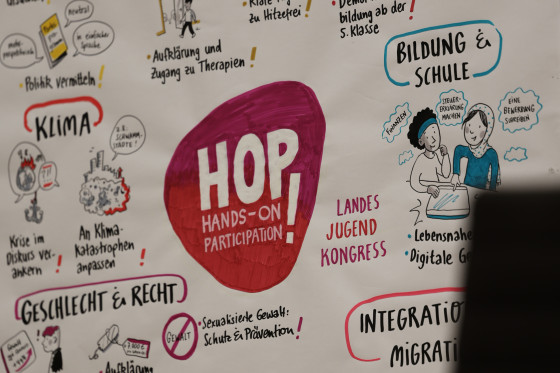 zu Hitzefrei!
bildung ab der
5. Klasse
Politik vermitteln!
in einfacher
Sprache
• Aufklärung und
Zugang zu Therapien!
BILDUNG &
SCHULE
FINANZEN
STEUER-
ERKLÄRUNG
MACHEN
EINE
BEWERBUNG
SCHREIBEN
KLIMA
z.B.
SCHWAMM-
STÄDTE
Krise im
Diskurs ver-
ankern!
An Klima-
Katastrophen
anpassen!
HOP!
HANDS-ON
PARTICIPATION
LANDES
JUGEND
KONGRESS
• Lebensnahe
• Digitale
GESCHLECHT & RECHT
GEWALT
• Sexualisierte Gewalt:
Schutz & Prävention!
Aufklärung
INTEGRATIO
MIGRATI